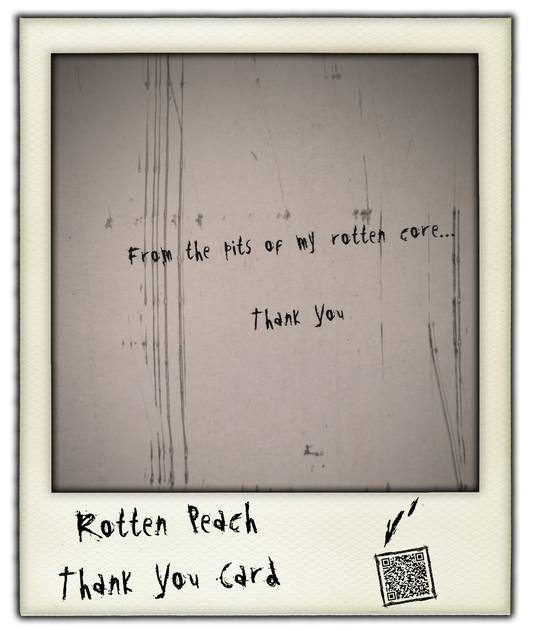 From the pits of my rotten core...
Thank You
Rotten Peach
Thank You Card